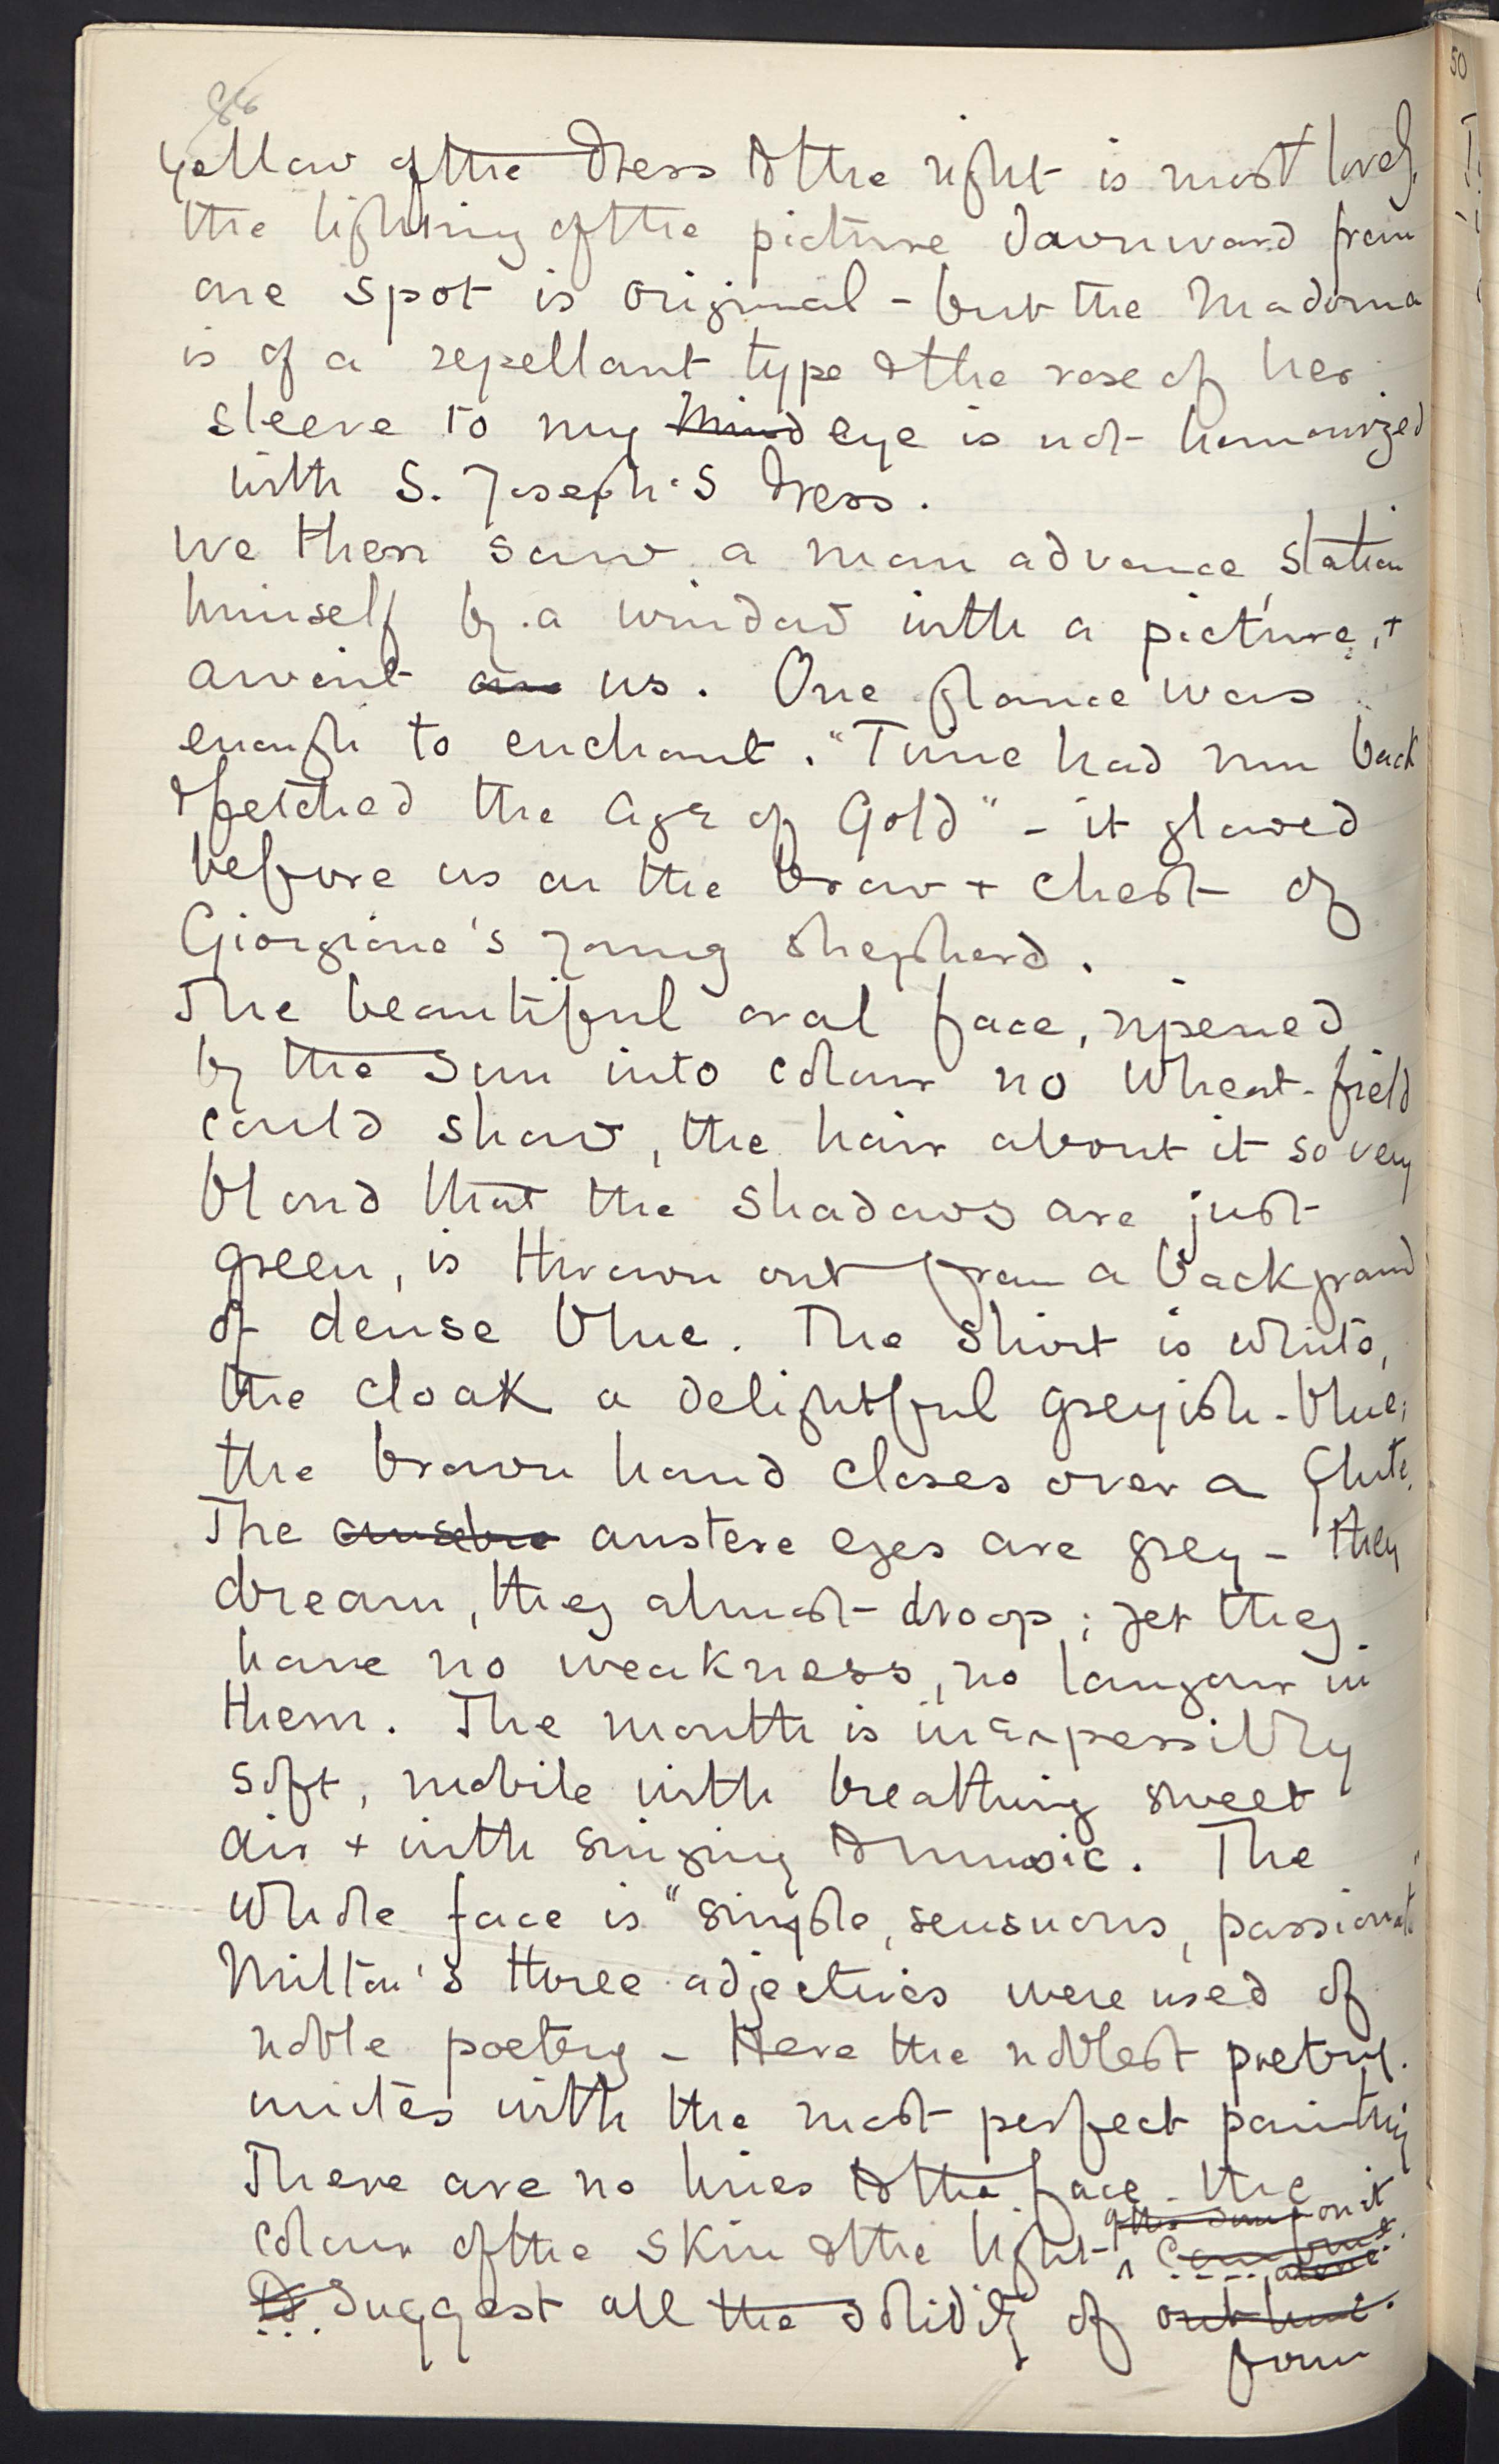 86
yellow of the dress to the right is most lovely.
the lighting of the picture downward from
one spot is original - but the Madonna
is of a repellant type & the rose of her
sleeve to my mind eye is not harmonized
with S. Joseph's dress.
We then saw a man advance, station
himself by a window with a picture, +
await us. One glance was
enough to enchant. "Time had run back
& fetched the Age of Gold" - it glowed
before us on the brow + chest of
Giorgione's young Shepherd.
The beautiful oval face, ripened
by the sun into colour no wheat-field
could show, the hair about it so very
blond that the shadows are just
green, is thrown out from a background
of dense blue. The shirt is white,
the cloak a delightful greyish-blue;
the brown hand closes over a flute.
The austere eyes are grey - they
dream, they almost droop; yet they
have no weakness, no langour in
them. The mouth is inexpressibly
soft, mobile with breathing sweet
air + with singing & music. The
whole face is "simple, sensuous, passionate"
Milton's three adjectives were used of
noble poetry - Here the noblest poetry
unites with the most perfect painting
There are no lines to the face - the
on it
colour of the skin & the light
suggest all the solidity of outline.
form